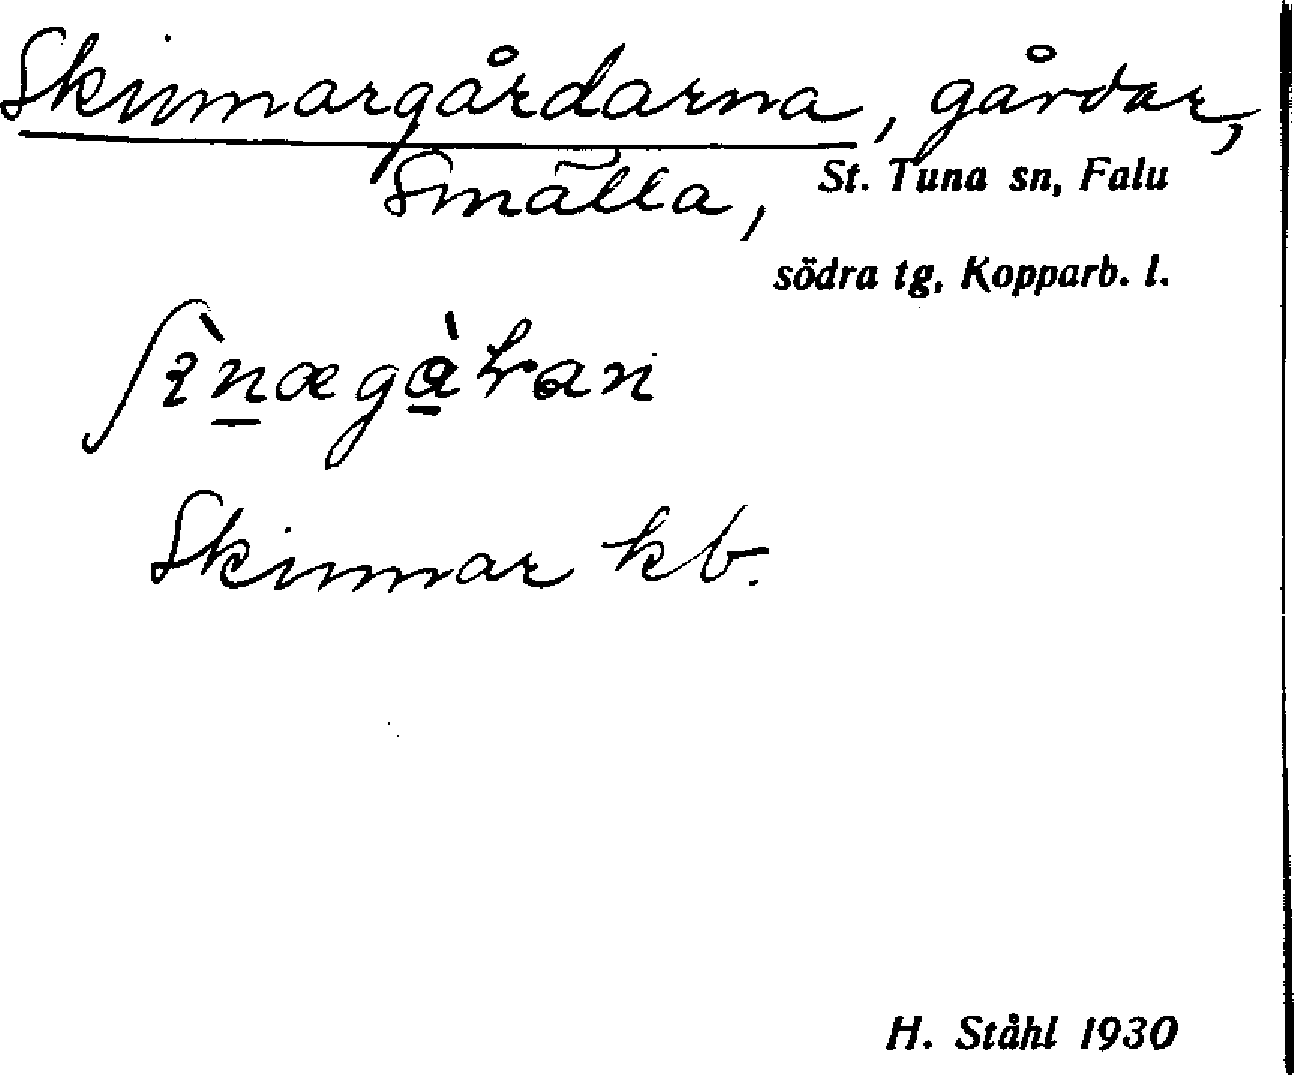 Skinnargårdarna, gårdar,
Smälla, St. Tuna sn, Falu
södra tg, Kopparb. l.
Skinnar kb.
H. Ståhl 1930